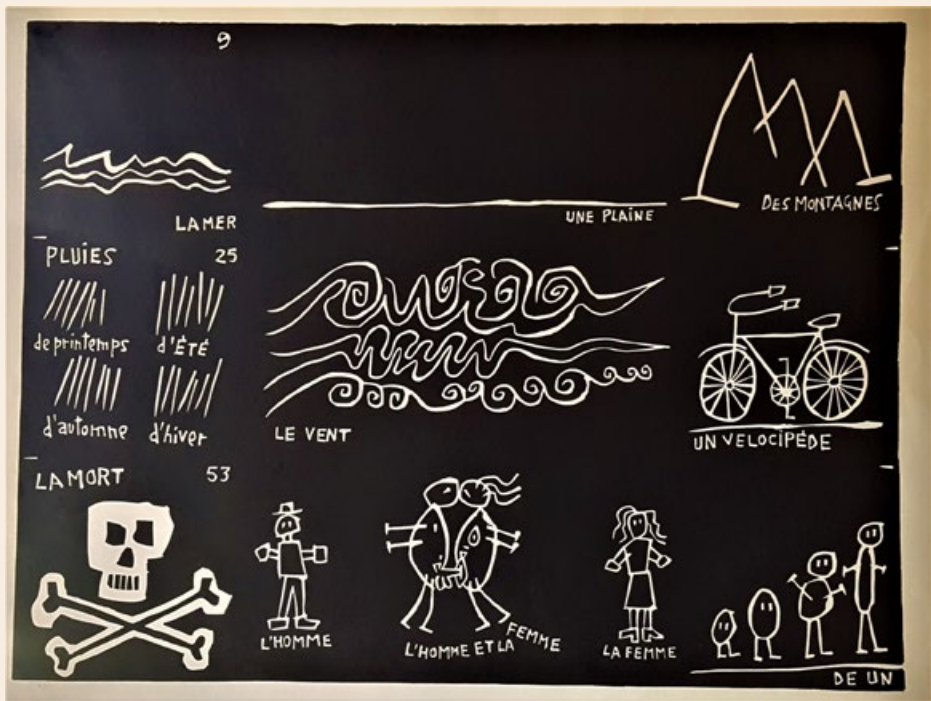 9
LA MER
UNE PLAiNE
DES MONTAGNES
PLUiES 25
de printemps d'ÉTÉ
d'automne d'hiver
LE VENT
UN VELOCiPÉDE
LA MORT 53
L'HOMME
L'HOMME ET LA FEMME
LA FEMME
DE UN